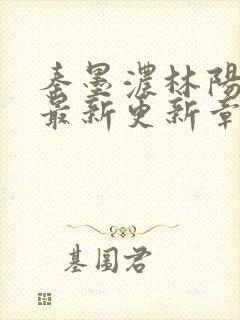 秦墨濃林陽
最新更新章
基圖君